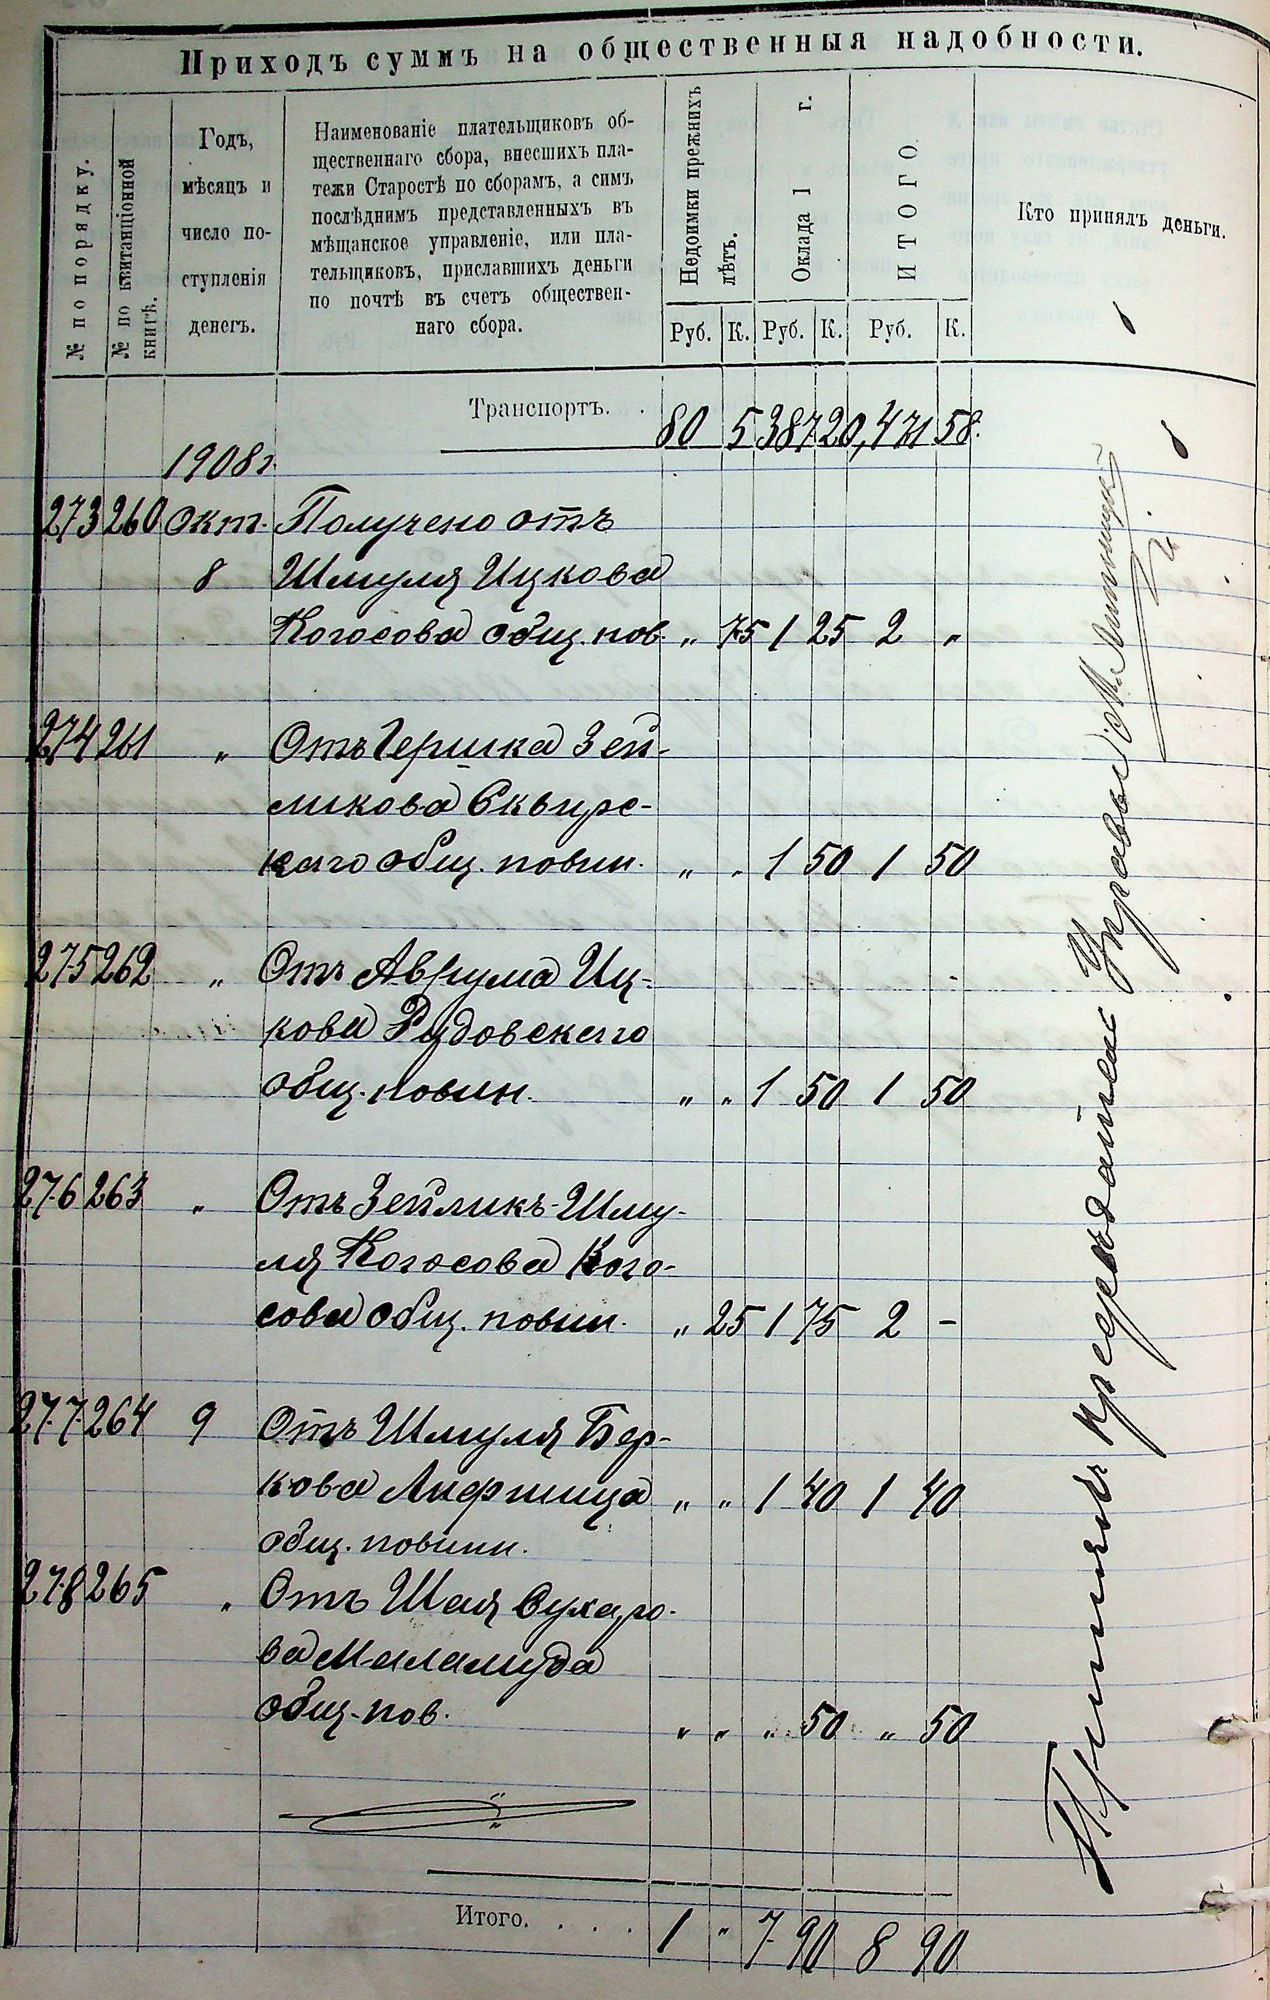 Приходъ суммъ на общественныя надобности.
№ по порядку.
№ по квитанціонной книгѣ.
Годъ,
мѣсяцъ и
число по-
ступленія
денегъ.
Наименованіе плательщиковъ об-
щественнаго сбора, внесшихъ пла-
тежи Старостѣ по сборамъ, а симъ
послѣднимъ представленныхъ въ
мѣщанское управленіе, или пла-
тельщиковъ, приславшихъ деньги
по почтѣ въ счетъ обществен-
наго сбора.
Недоимки прежнихъ лѣтъ.
Оклада 1 г.
ИТОГО.
Кто принялъ деньги.
Руб. К. Руб. К. Руб. К.
Транспортъ. . 80 5 387 20, 471 58.
1908 г.
273 260 Окт. Получено отъ
8 Шмуля Ицкова
Когосова общ. пов. „ 75 1 25 2 „
274 261 „ Отъ Гершка Зей-
ликова Сквирс-
каго общ. повин. „ „ 1 50 1 50
275 262 „ Отъ Аврума Иц-
кова Рудовскаго
общ. повин. „ „ 1 50 1 50
276 263 „ Отъ Зейликъ-Шму-
ля Когосова Кого-
сова общ. повин. „ 25 1 75 2 -
277 264 9 Отъ Шмуля Бер-
кова Лифшица „ „ 1 40 1 40
общ. повинн.
278 265 „ Отъ Шая Сухаро-
ва Маламуда
общ. пов. „ „ „ 50 „ 50
Итого. . . . . 1 „ 7 90 8 90
Управы